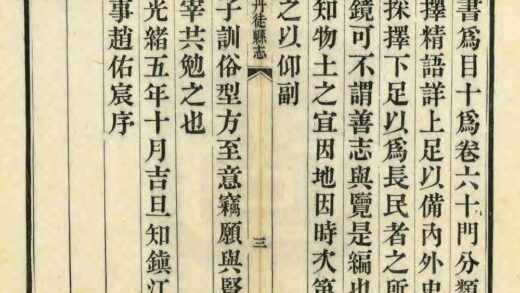 書爲目十爲卷六十門分類
擇精語詳上足以備內外史
採擇下足以爲長民者之所
鏡可不謂善志與覽是編也
知物土之宜因地因時次第
之以仰副
丹徒縣志
三
子訓俗型方至意竊願與賢
宰共勉之也
光緒五年十月吉旦知鎮江
事趙佑宸序